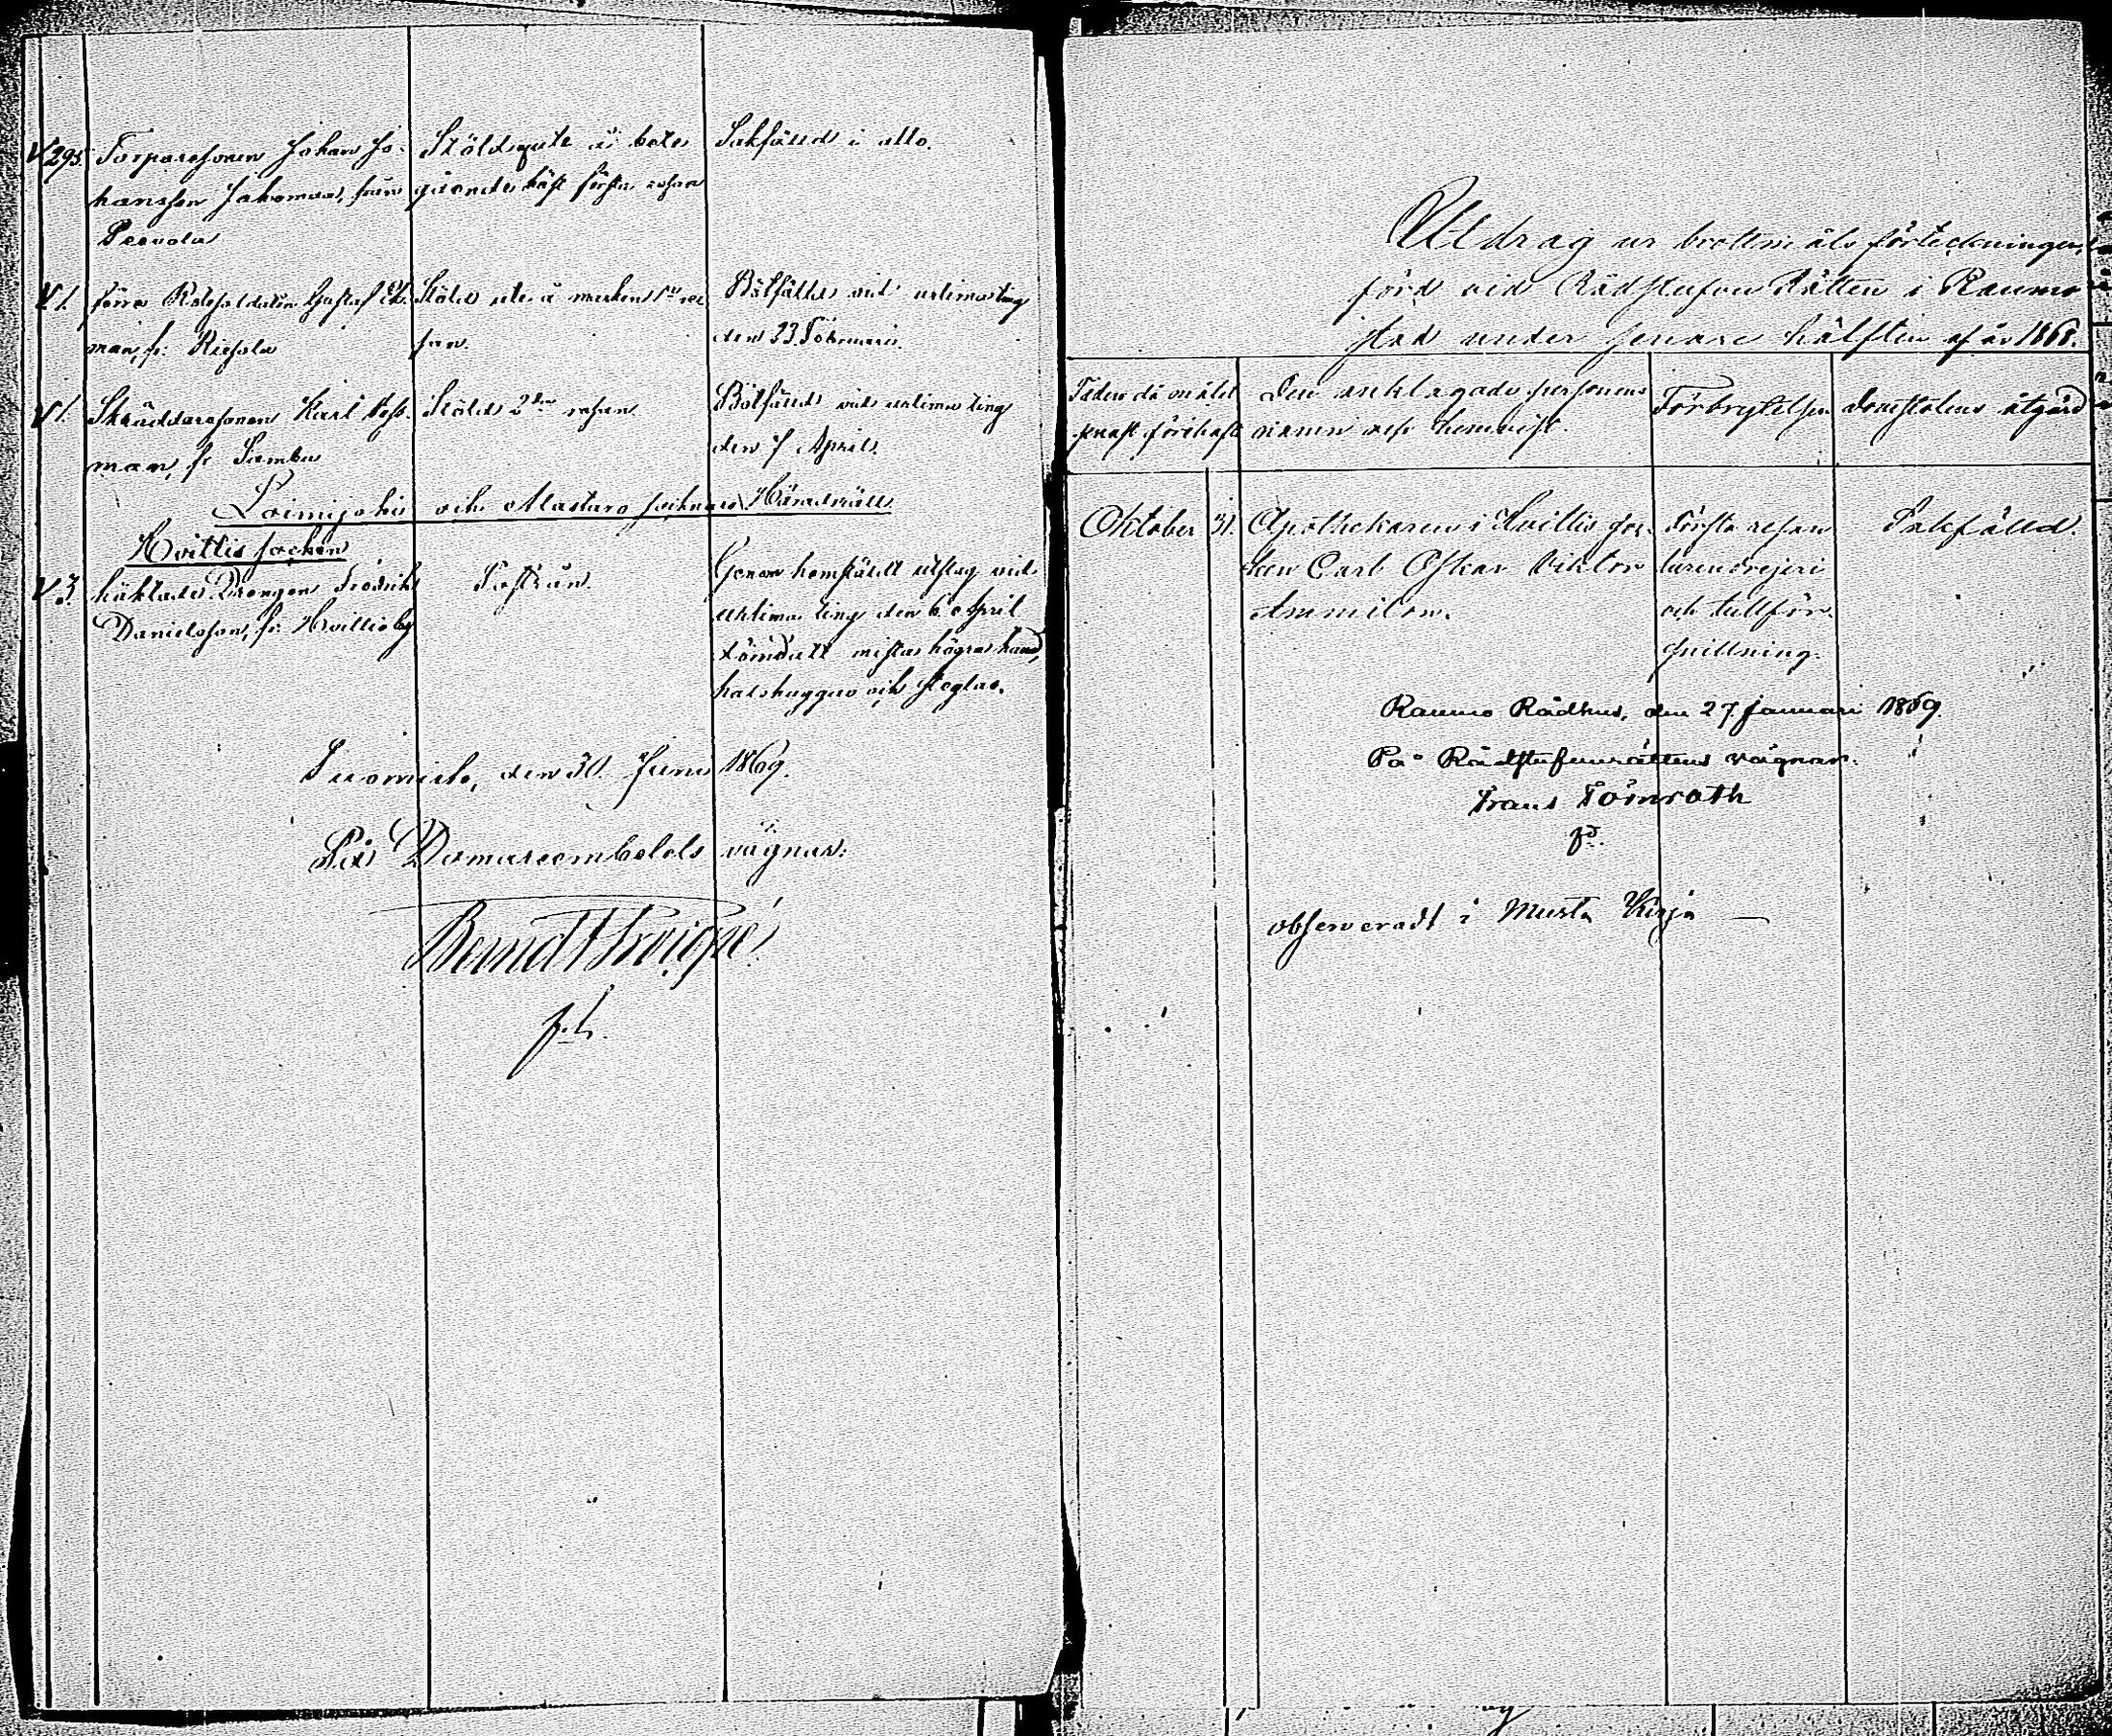 295. Torparesonen Johan Jo-
hansson Jakomaa, från
Peevola
Stöld ute å bete
gående häst första resan
Sakfälld i allo.
1. förre Rotesoldaten Gustaf Ek-
man, fr. Riesola
Stöld ute å marken 1sta re-
san.
Bötfälld vid urtima ting
den 23 Februari.
1. Skräddaresonen Karl
man, fr. Samba
Stöld 2dra resan
Bötfälld vid urtima ting
den 7 April.
Loimijoki och Alastaro socknars Häradsrätt
Hvittis socken
3. häktade Drengen Fredrik
Danielsson, fr. Hvittisby
Postrån
Genom hemstäldt utslag vid
urtima ting den 6 April
dömd att mista högra hand,
halshuggas och steglas.
den 30 Juni 1869.
På Domareembetets vägnar:
Utdrag ur brottmåls förteckningen,
förd vid Rådstufvu Rätten i Raumo
stad under senare hälften af år 1868.
Tiden då målet
senast förehafts
Den anklagade personens
namn och hemvist.
Förbrytelsen
Domstolens åtgärd
Oktober 31.
Apothekaren i Hvittis soc-
ken Carl Oskar Viktor
Ammilon.
Första resan
lurendrejeri
och tullför-
snillning.
Sakfälld.
Raumo Rådhus, den 27 Januari 1869.
På Rådstufvurättens vägnar.
Frans Tömroth
observeradt i Musta Kirja —